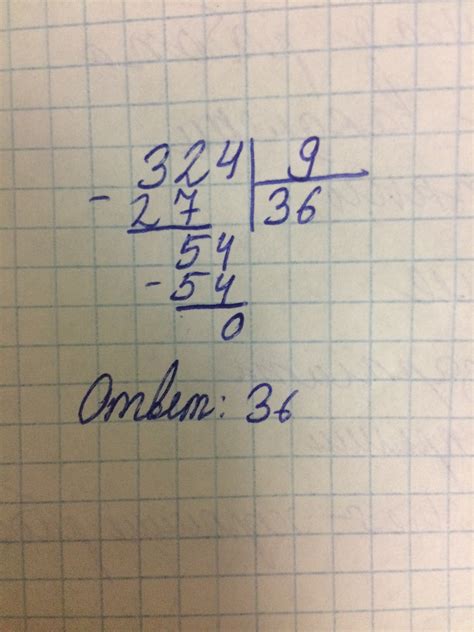 324 | 9
- 27 | 36
54
- 54
0
Ответ: 36